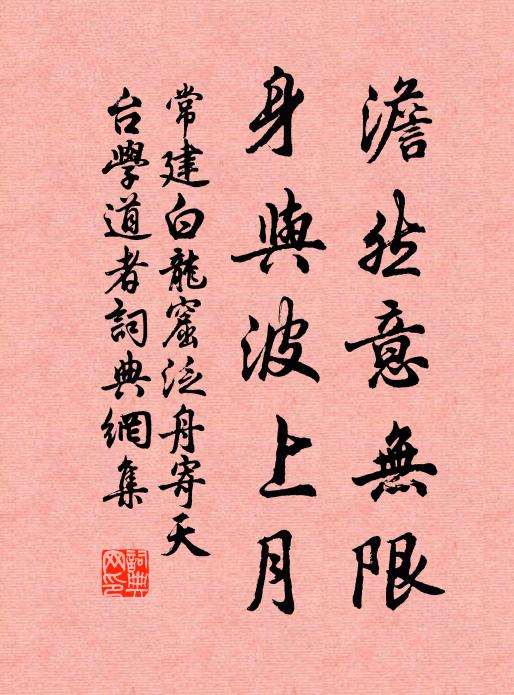 澹然意無限
身與波上月
常建白龍窟泛舟寄天
台學道者詞典網集
詞典
网印